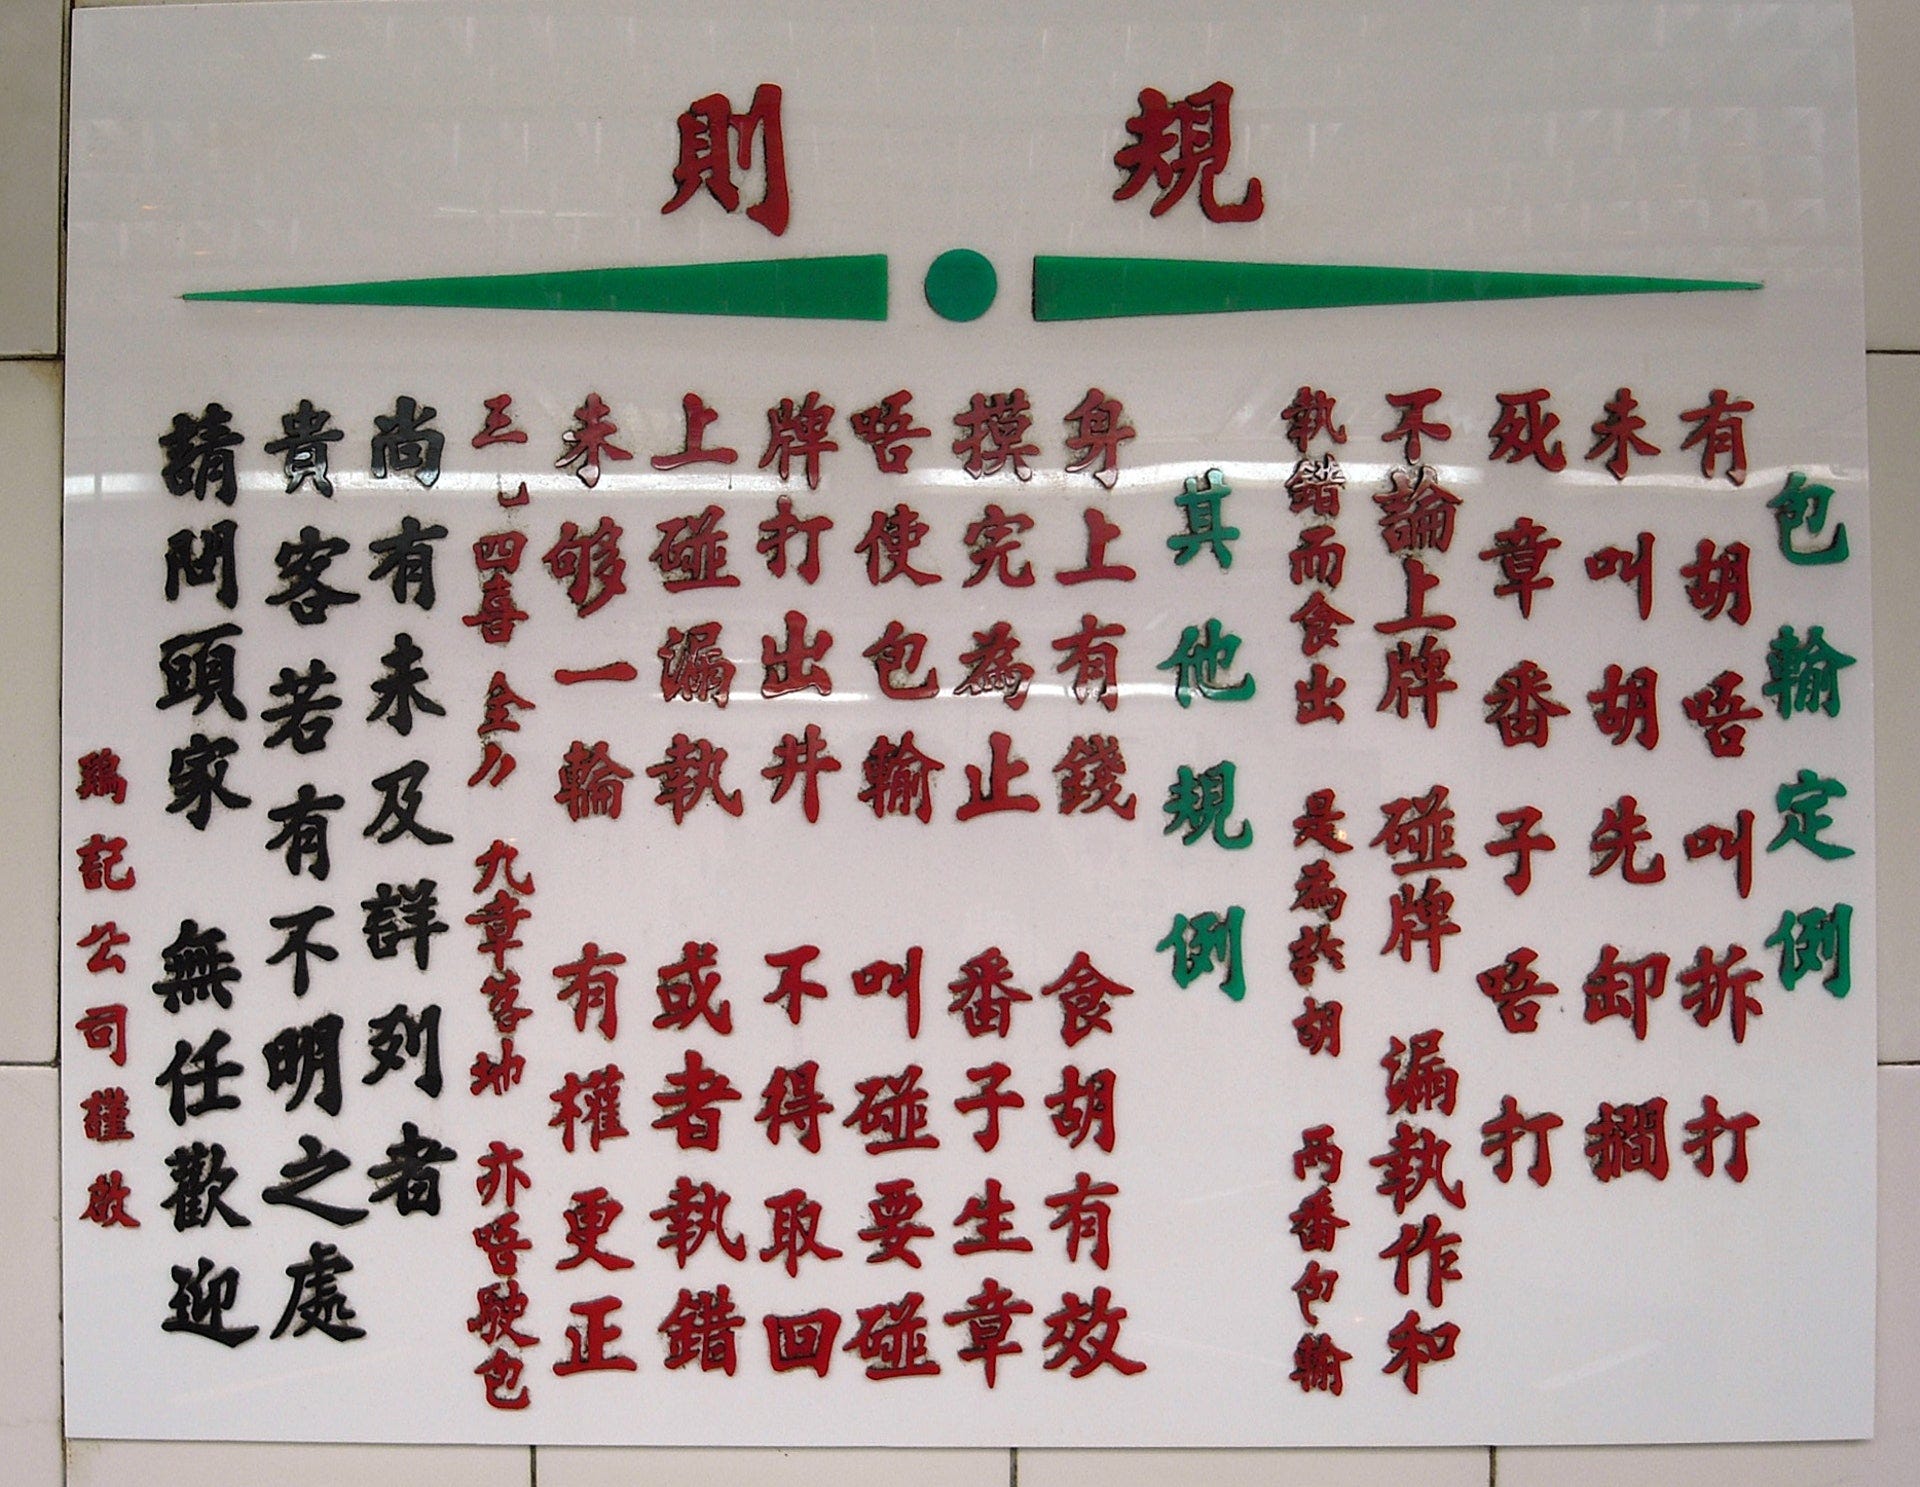 規則
包輸定例
有胡唔叫拆打
未叫胡先卸摑
死章番子唔打
不論上牌 碰牌 漏執作和
執錯而食出 是為詐胡 两番包輸
其他規例
身上有錢 食胡有效
摸完為止 番子生章
唔使包輸 叫碰要碰
牌打出井 不得取回
上碰漏執 或者執錯
未够一輪 有權更正
三 四喜 全 九章 亦唔駛包
尚有未及詳列者
貴客若有不明之處
請問頭家 無任歡迎
記公司謹啟